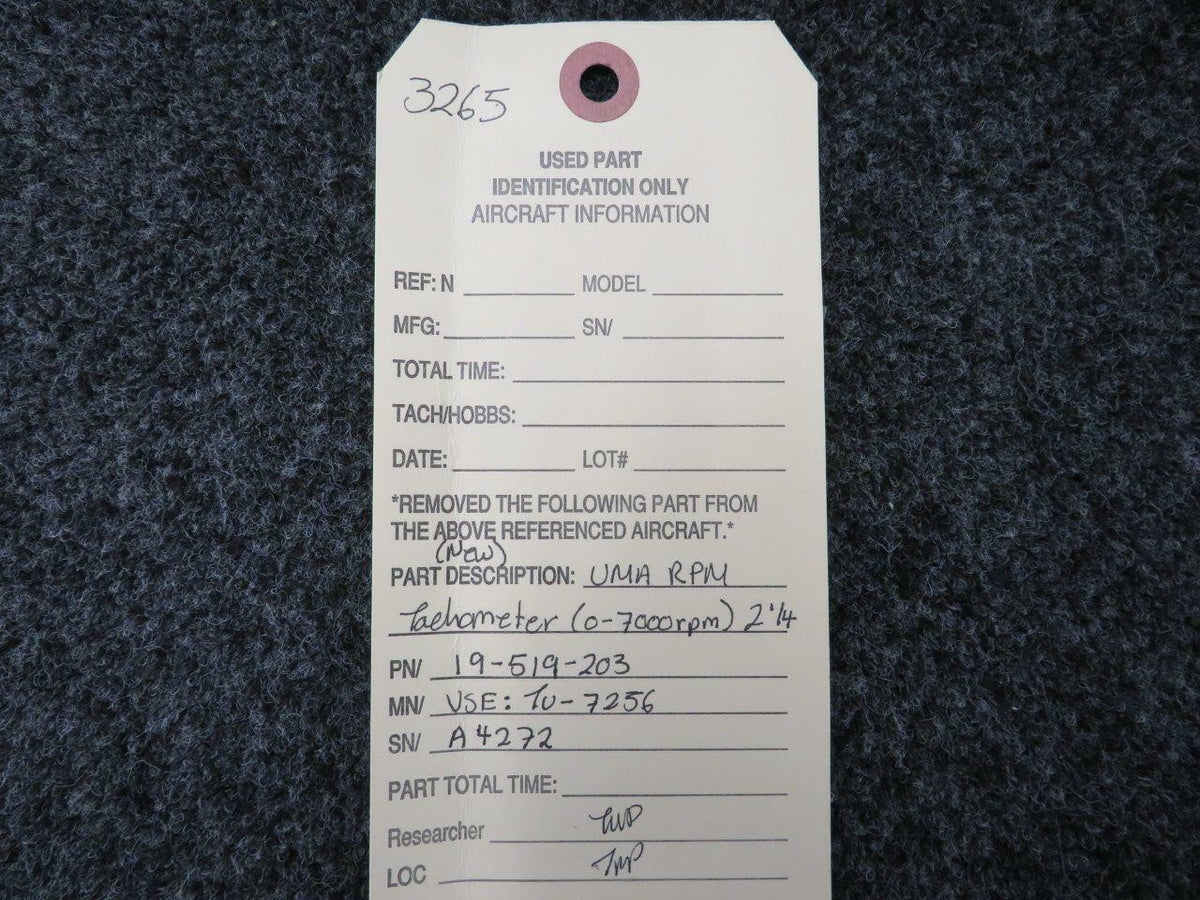 3265
USED PART
IDENTIFICATION ONLY
AIRCRAFT INFORMATION
REF: N MODEL
MFG: SN/
TOTAL TIME:
TACH/HOBBS:
DATE: LOT#
*REMOVED THE FOLLOWING PART FROM
THE ABOVE REFERENCED AIRCRAFT.*
(New)
PART DESCRIPTION: UMA RPM
Tachometer (0-7000rpm) 2 1/4
PN/ 19-519-203
MN/ USE: TU-7256
SN/ A4272
PART TOTAL TIME:
Researcher
LOC